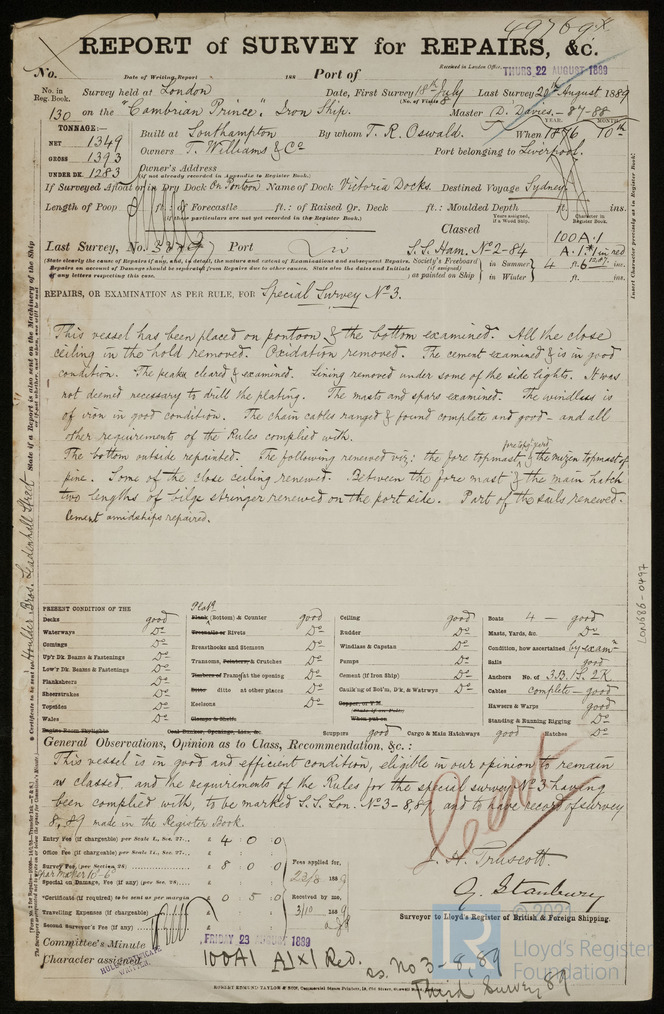 49769 *
REPORT of SURVEY for REPAIRS, &c.
Received in London Office, THURS. 22 AUGUST 1889
No. Date of Writing Report 188 Port of
No. in Reg. Book. Survey held at London Date, First Survey 18th July Last Survey 20th August 1889
(No. of Visits 8
130 on the "Cambrian Prince", Iron Ship. Master D. Davies - 87-88
TONNAGE:-
NET 1349
GROSS 1393
UNDER DK. 1283
YEAR. MONTH.
Built at Southampton By whom T. R. Oswald. When 1876 10th
Owners T. Williams & Co Port belonging to Liverpool.
Owner's Address
(if not already recorded in Appendix to Register Book.)
If Surveyed Afloat or in Dry Dock On Pontoon Name of Dock Victoria Docks. Destined Voyage Sydney
Length of Poop ft.: of Forecastle ft.: of Raised Qr. Deck ft.: Moulded Depth ft. ins.
(if these particulars are not yet recorded in the Register Book.)
Years assigned, if a Wood Ship. Character in Register Book.
Classed 100 A.1
Last Survey, No. Port Liv S.S. Ham. No 2-84 A.1. in red
(State clearly the cause of Repairs if any, and, in detail, the nature and extent of Examinations and subsequent Repairs.
Repairs on account of Damage should be separated from Repairs due to other causes. State also the dates and Initials of any letters respecting this case.
Society's Freeboard (if assigned) as painted on Ship in Summer 4 ft. 6 ins.
in Winter ft. ins.
Insert Character precisely as in Register Book.
REPAIRS, OR EXAMINATION AS PER RULE, FOR Special Survey No 3.
This vessel has been placed on pontoon & the bottom examined. All the close
ceiling in the hold removed. Oxidation removed. The cement examined & is in good
condition. The peaks cleared & examined. Lining removed under some of the side lights. It was
not deemed necessary to drill the plating. The mast and spars examined. The windlass is
of iron in good condition. The chain cables ranged & found complete and good - and all
other requirements of the Rules complied with.
The bottom outside repainted. The following renewed viz: the fore topmast & the mizen topmast of
pine. Some of the close ceiling renewed. Between the fore mast & the main hatch
two lengths of bilge stringer renewed on the port side. Part of the sails renewed.
Cement amidships repaired.
State if a Report is also sent on the Machinery of the Ship
Certificate to be sent to Houlder Bros. Leadenhall Street
LON686-0497
PRESENT CONDITION OF THE
Decks good
Waterways Do
Comings Do
Up'r Dk Beams & Fastenings Do
Low'r Dk. Beams & Fastenings Do
Planksheers Do
Sheerstrakes Do
Topsides Do
Wales Do
Engine Room Skylights
Plate
Plank (Bottom) & Counter good
Treenails or Rivets Do
Breasthooks and Stemson Do
Transoms, Pointers, & Crutches Do
Timbers of Frame at the opening Do
Ditto ditto at other places Do
Keelsons Do
Clamps & Shelfs
Coal Bunker, Openings, Lids, &c.
Ceiling good
Rudder Do
Windlass & Capstan Do
Pumps Do
Cement (if Iron Ship) Do
Caulk'ng of Bot'm, D'k, & Watrwys Do
Copper, or Y.M.
When put on
Scuppers good Cargo & Main Hatchways good Hatches Do
Boats 4 - good
Masts, Yards, &c. Do
Condition, how ascertained by examn
Sails good
Anchors No. of 3.B. 1S. 2K
Cables complete - good
Hawsers & Warps good
Standing & Running Rigging Do
General Observations, Opinion as to Class, Recommendation, &c.:
This vessel is in good and efficient condition, eligible in our opinion to remain
as classed, and the requirements of the Rules for the special survey No 3 having
been complied with, to be marked S.S. Lon. No 3 - 8,89. and to have record of survey
8,89 made in the Register Book.
Entry Fee (if chargeable) per Scale I., Sec. 27... £ 4 0 0
Office Fee (if chargeable) per Scale II., Sec. 27... £
Survey Fee (per Section 28) £ 8 0 0
Special on Damage, Fee (if any) (per Sec. 28) £
Certificate (if required) to be sent as per margin £ 0 5 0
Travelling Expenses (if chargeable) £
Second Surveyor's Fee (if any) £
Fees applied for, 22/8 1889
Received by me, 3/10 1889
J. H. Truscott.
G. Stanbury
Surveyor to Lloyd's Register of British & Foreign Shipping.
Committee's Minute FRIDAY 23 AUGUST 1889
Character assigned 100A1 A1X1 Red. ss. No 3 - 8,89
Third Survey, 89
HULL CERTIFICATE WRITTEN.
© 2021
LR Lloyd's Register Foundation
ROBERT EDMUND TAYLOR & SON, Commercial Steam Printers, 19, Old Street, Goswell Road, London.